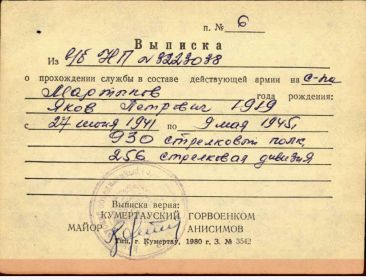 п. № 6
Выписка
Из в/б НП № 9223038
о прохождении службы в составе действующей армии на с-та
Мартынов
года рождения:
Яков Петрович 1919
с 27 июня 1941 по 9 мая 1945г.
930 стрелковый полк,
256 стрелковая дивизия
Выписка верна:
КУМЕРТАУСКИЙ ГОРВОЕНКОМ
МАЙОР АНИСИМОВ
Тип. г. Кумертау, 1980 г. З. № 3542